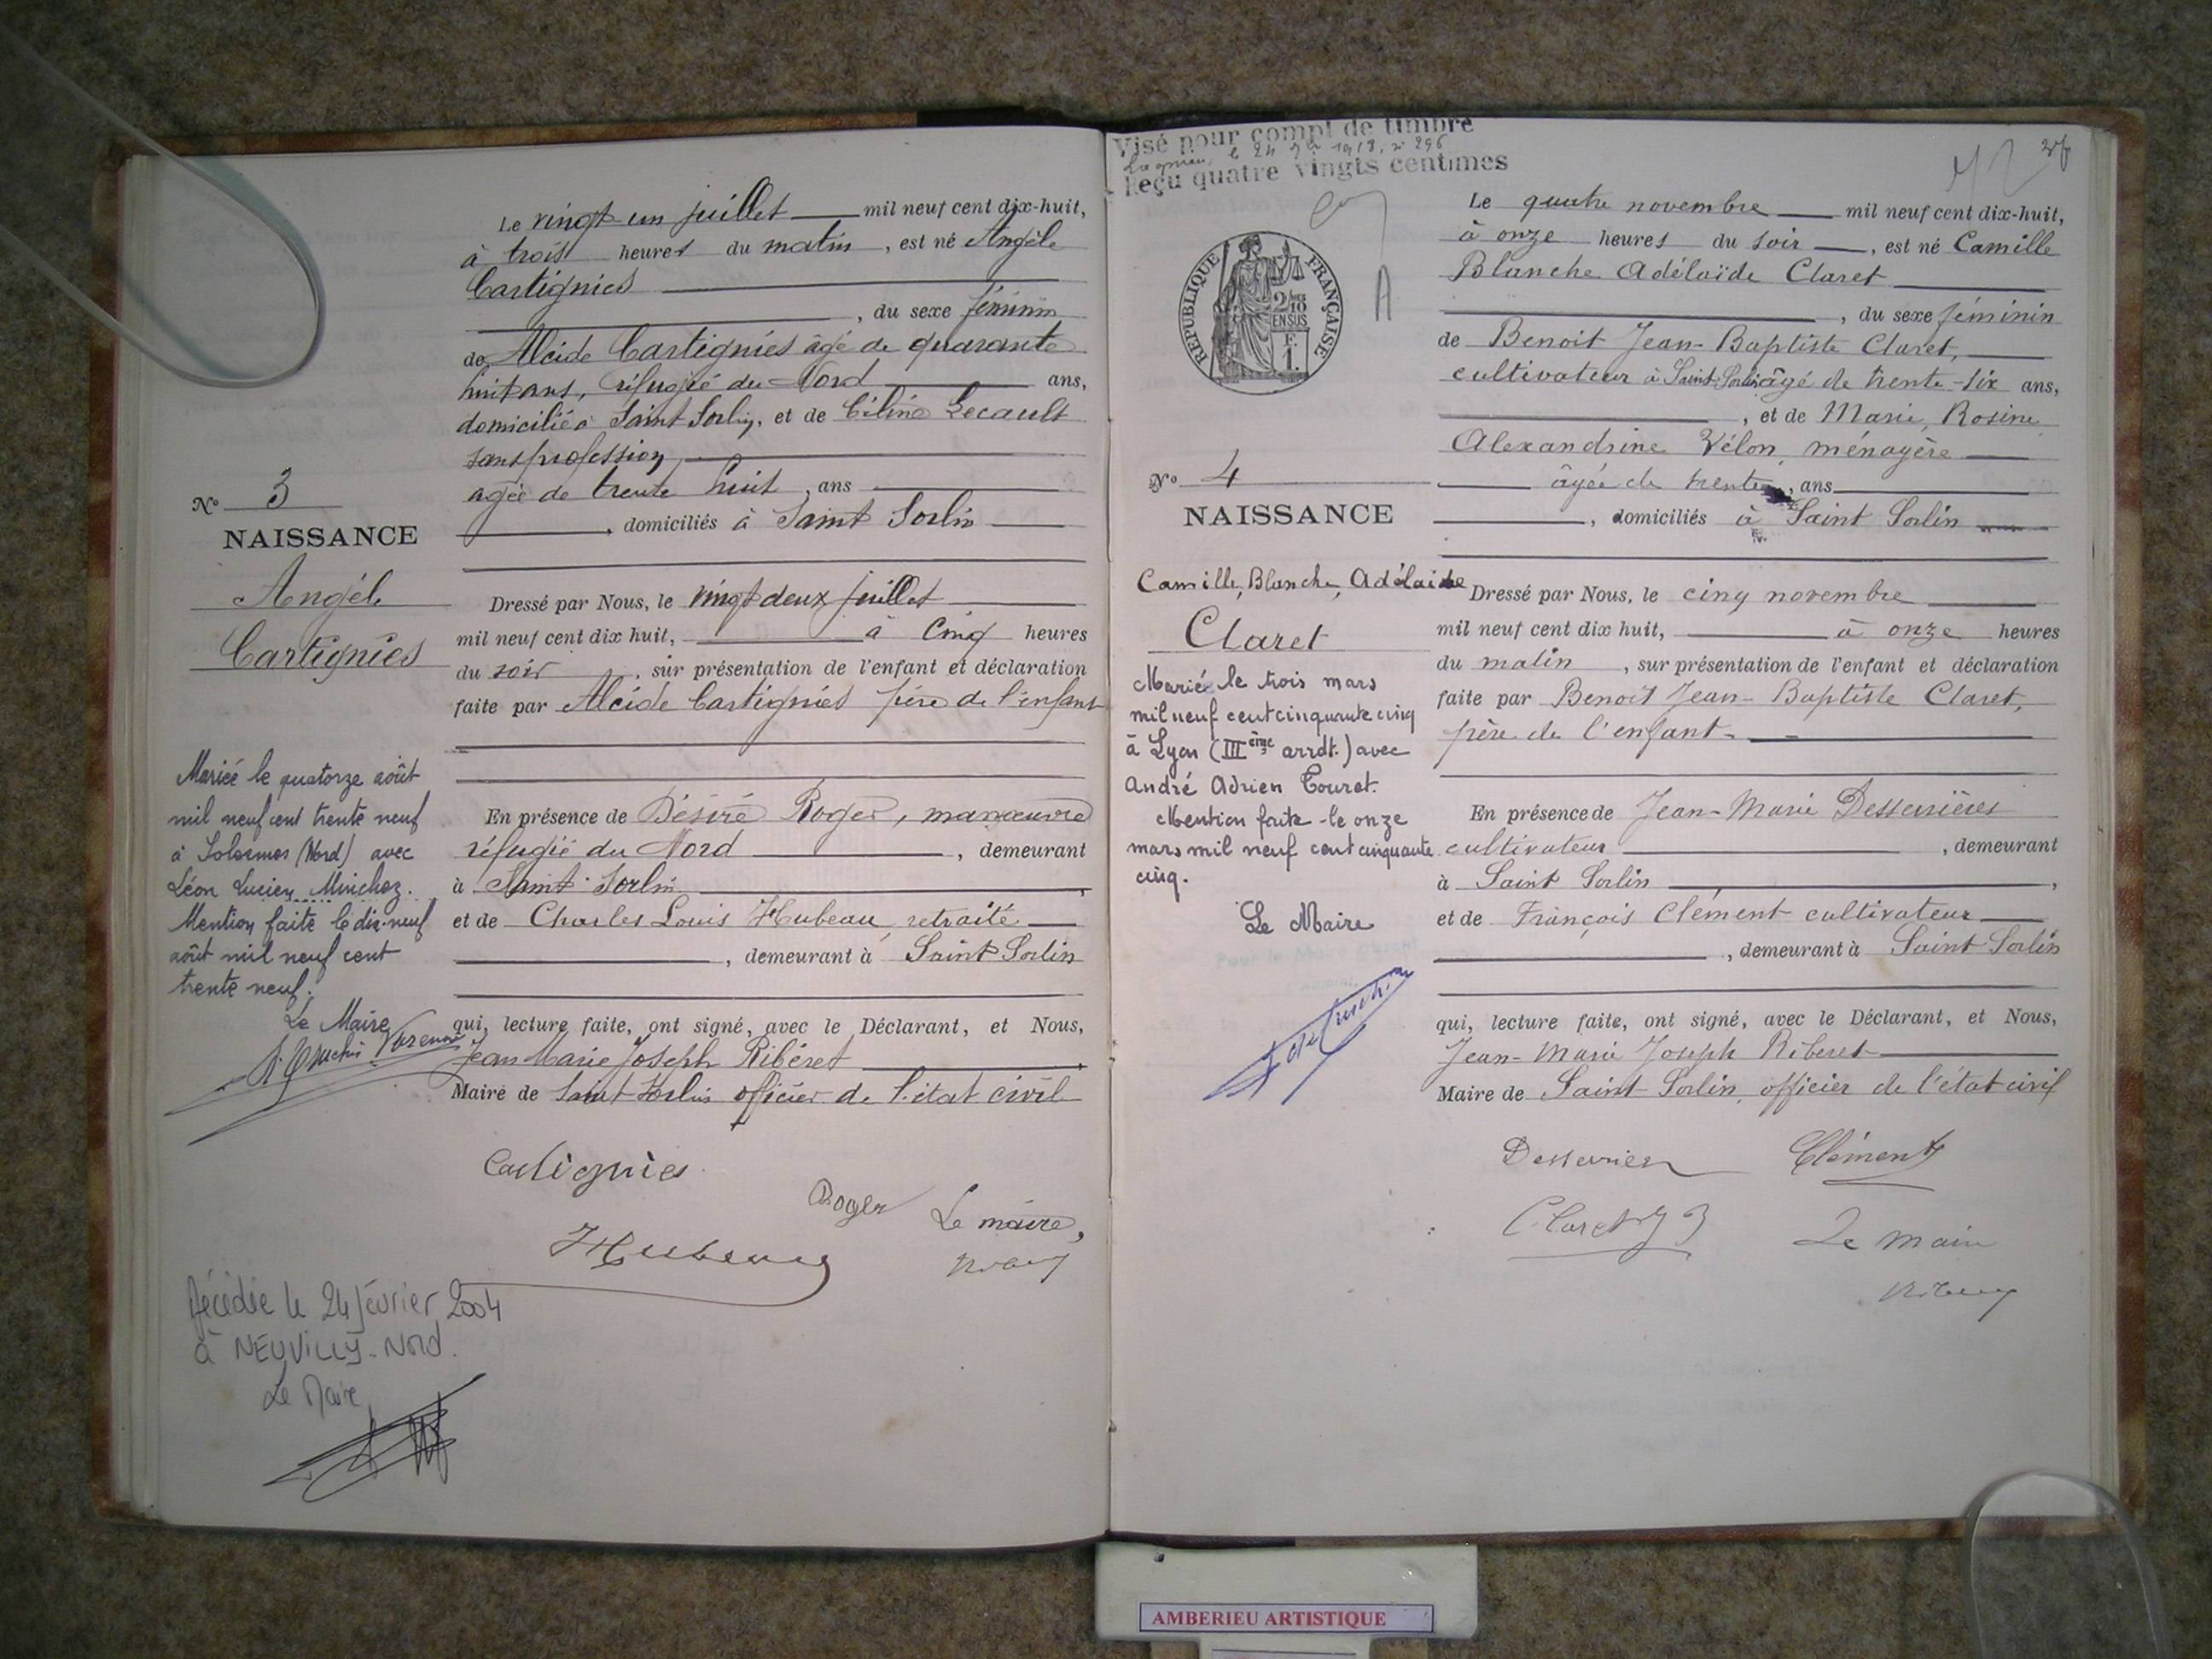 Le vingt un juillet mil neuf cent dix-huit,
à trois heures du matin, est né Angèle
Cartignies
, du sexe féminin
de Alcide Cartignies âgé de quarante
huit ans, réfugié du Nord ans,
domicilié à Saint Sorlin, et de Céline Lecault
sans profession,
agée de trente huit, ans
, domiciliés à Saint Sorlin
No 3
NAISSANCE
Angèle
Cartignies
Dressé par Nous, le vingt deux juillet
mil neuf cent dix huit, à cinq heures
du soir, sur présentation de l'enfant et déclaration
faite par Alcide Cartignies père de l'enfant
En présence de Désiré Roger, manœuvre
réfugié du Nord, demeurant
à Saint Sorlin,
et de Charles Louis Hubeau, retraité
, demeurant à Saint Sorlin
qui, lecture faite, ont signé, avec le Déclarant, et Nous,
Jean Marie Joseph Ribéret
Maire de Saint Sorlin officier de l'état civil
Mariée le quatorze août
mil neuf cent trente neuf
à Solesmes (Nord) avec
Léon Lucien Minchez.
Mention faite le dix-neuf
août mil neuf cent
trente neuf.
Le Maire
Cartignies
Roger
Le maire,
Hubeau
Décédée le 24 février 2004
à NEUVILLY-Nord.
Le Maire
Visé pour compt de timbre
1918, n° 296
Reçu quatre vingts centimes
RÉPUBLIQUE FRANÇAISE
2/10
EN SUS
F.
1.
A
Le quatre novembre mil neuf cent dix-huit,
à onze heures du soir, est né Camille
Blanche Adélaïde Claret
, du sexe féminin
de Benoit Jean-Baptiste Claret,
cultivateur à Saint-Sorlin âgé de trente-six ans,
, et de Marie, Rosine
Alexandrine Vélon, ménagère
âgée de trente, ans
, domiciliés à Saint Sorlin
No 4
NAISSANCE
Camille, Blanche, Adélaide
Claret
Dressé par Nous, le cinq novembre
mil neuf cent dix huit, à onze heures
du matin, sur présentation de l'enfant et déclaration
faite par Benoit Jean-Baptiste Claret,
père de l'enfant
En présence de Jean-Marie Desserrières
cultivateur, demeurant
à Saint Sorlin,
et de François Clément cultivateur
, demeurant à Saint Sorlin
qui, lecture faite, ont signé, avec le Déclarant, et Nous,
Jean-Marie Joseph Riberet
Maire de Saint Sorlin, officier de l'état civil
Mariée le trois mars
mil neuf cent cinquante cinq
à Lyon (IIIème arrdt.) avec
André Adrien Touret.
Mention faite le onze
mars mil neuf cent cinquante
cinq.
Le Maire
Clément
Claret
Le maire
AMBERIEU ARTISTIQUE